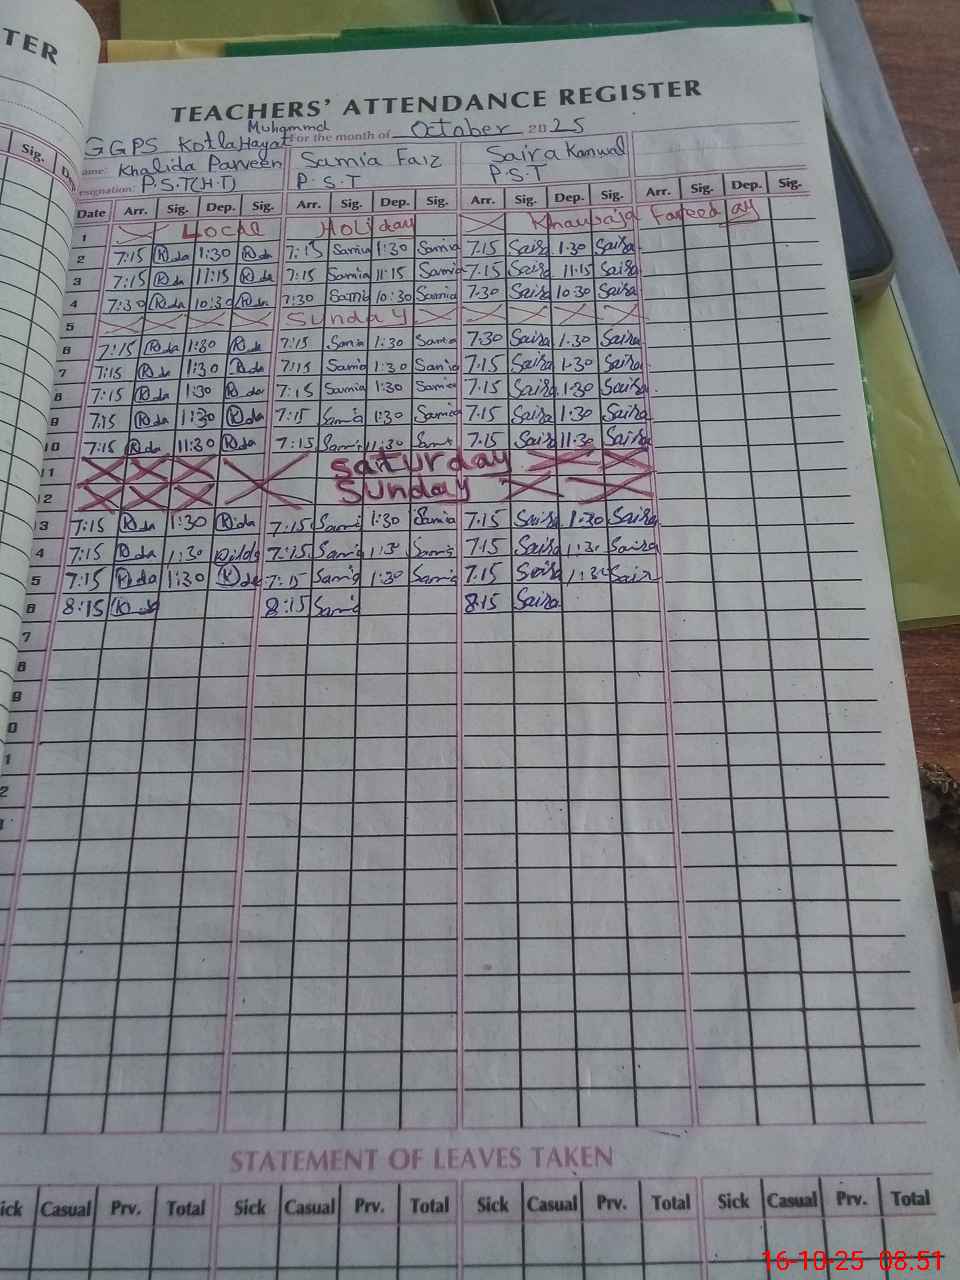 TER
Sig.
TEACHERS' ATTENDANCE REGISTER
GGPS Kotla Hayat Muhammd For the month of October 2025
ame: Khalida Parveen Samia Faiz Saira Kanwal
esignation: P.S.T(H.T) P.S.T P.S.T
Date Arr. Sig. Dep. Sig. Arr. Sig. Dep. Sig. Arr. Sig. Dep. Sig. Arr. Sig. Dep. Sig.
1 Local Holiday Khawaja Fareed ay
2 7:15 1:30 7:15 Samia 1:30 Samia 7.15 Saira 1.30 Saira
3 7:15 11:15 7:15 Samia 11:15 Samia 7.15 Saira 11.15 Saira
4 7:30 10:30 7:30 Sami 10:30 Samia 7.30 Saira 10.30 Saira
5 Sunday
6 7:15 1:30 7:15 Samia 1:30 Samia 7.30 Saira 1.30 Saira
7 7:15 1:30 7:15 Samia 1:30 Samia 7.15 Saira 1.30 Saira
8 7:15 1:30 7:15 Samia 1:30 Samia 7.15 Saira 1.30 Saira
9 7:15 1:30 7:15 Samia 1:30 Samia 7.15 Saira 1.30 Saira
10 7:15 11:30 7:15 Sami 11:30 Sami 7.15 Saira 11.30 Saira
11 Saturday
12 Sunday
3 7:15 1:30 7:15 Sami 1:30 Samia 7.15 Saira 1.30 Saira
4 7:15 1:30 7:15 Sami 1:3 Sami 7.15 Saira 1:3 Saira
5 7:15 1:30 7:15 Sami 1:30 Sami 7.15 Saira 1:3 Sair
6 8:15 8:15 Sami 8.15 Saira
7
8
9
0
1
2
STATEMENT OF LEAVES TAKEN
ick Casual Prv. Total Sick Casual Prv. Total Sick Casual Prv. Total Sick Casual Prv. Total
16-10-25 08.51